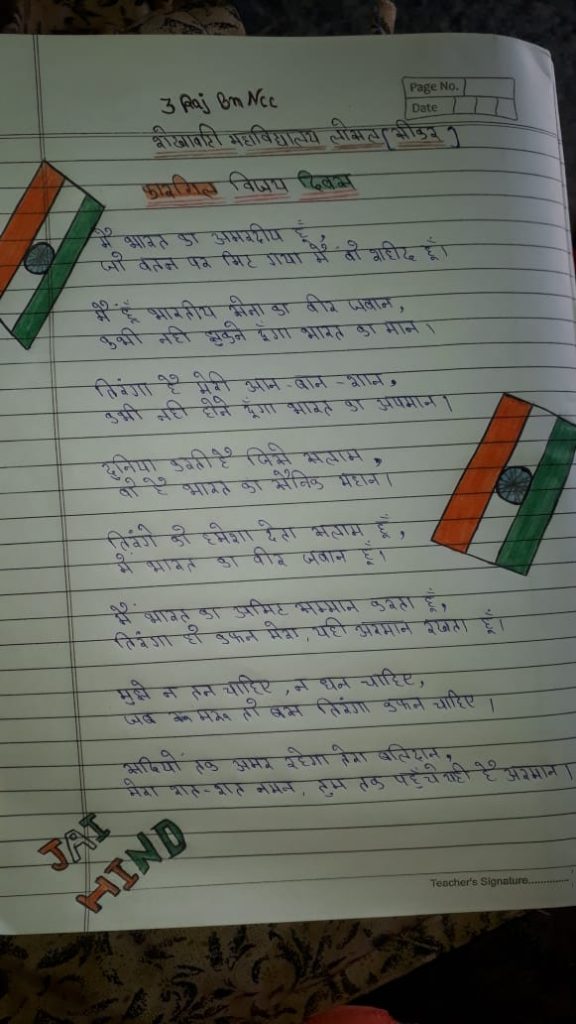 3 Raj Bn Ncc
Page No.
Date
शेखावाटी महाविद्यालय लोसल (सीकर)
कारगिल विजय दिवस
मैं भारत का अमरदीप हूँ,
जो वतन पर मिट गया मैं वो शहीद हूँ।
मैं हूँ भारतीय सेना का वीर जवान,
कभी नही झुकने दूँगा भारत का मान।
तिरंगा है मेरी आन-बान-शान,
कभी नही होने दूँगा भारत का अपमान।
दुनिया करती है जिसे सलाम,
वो है भारत का सैनिक महान।
तिरंगे को हमेशा देता सलाम हूँ,
मैं भारत का वीर जवान हूँ।
मैं भारत का अमिट सम्मान करता हूँ,
तिरंगा हो कफन मेरा, यही अरमान रखता हूँ।
मुझे न तन चाहिए, न धन चाहिए,
जब मरू तो बस तिरंगा कफन चाहिए।
सदियों तक अमर रहेगा तेरा बलिदान,
मेरा शत-शत नमन, तुम तक पहुँचे यही है अरमान।
JAI
HIND
Teacher's Signature.............